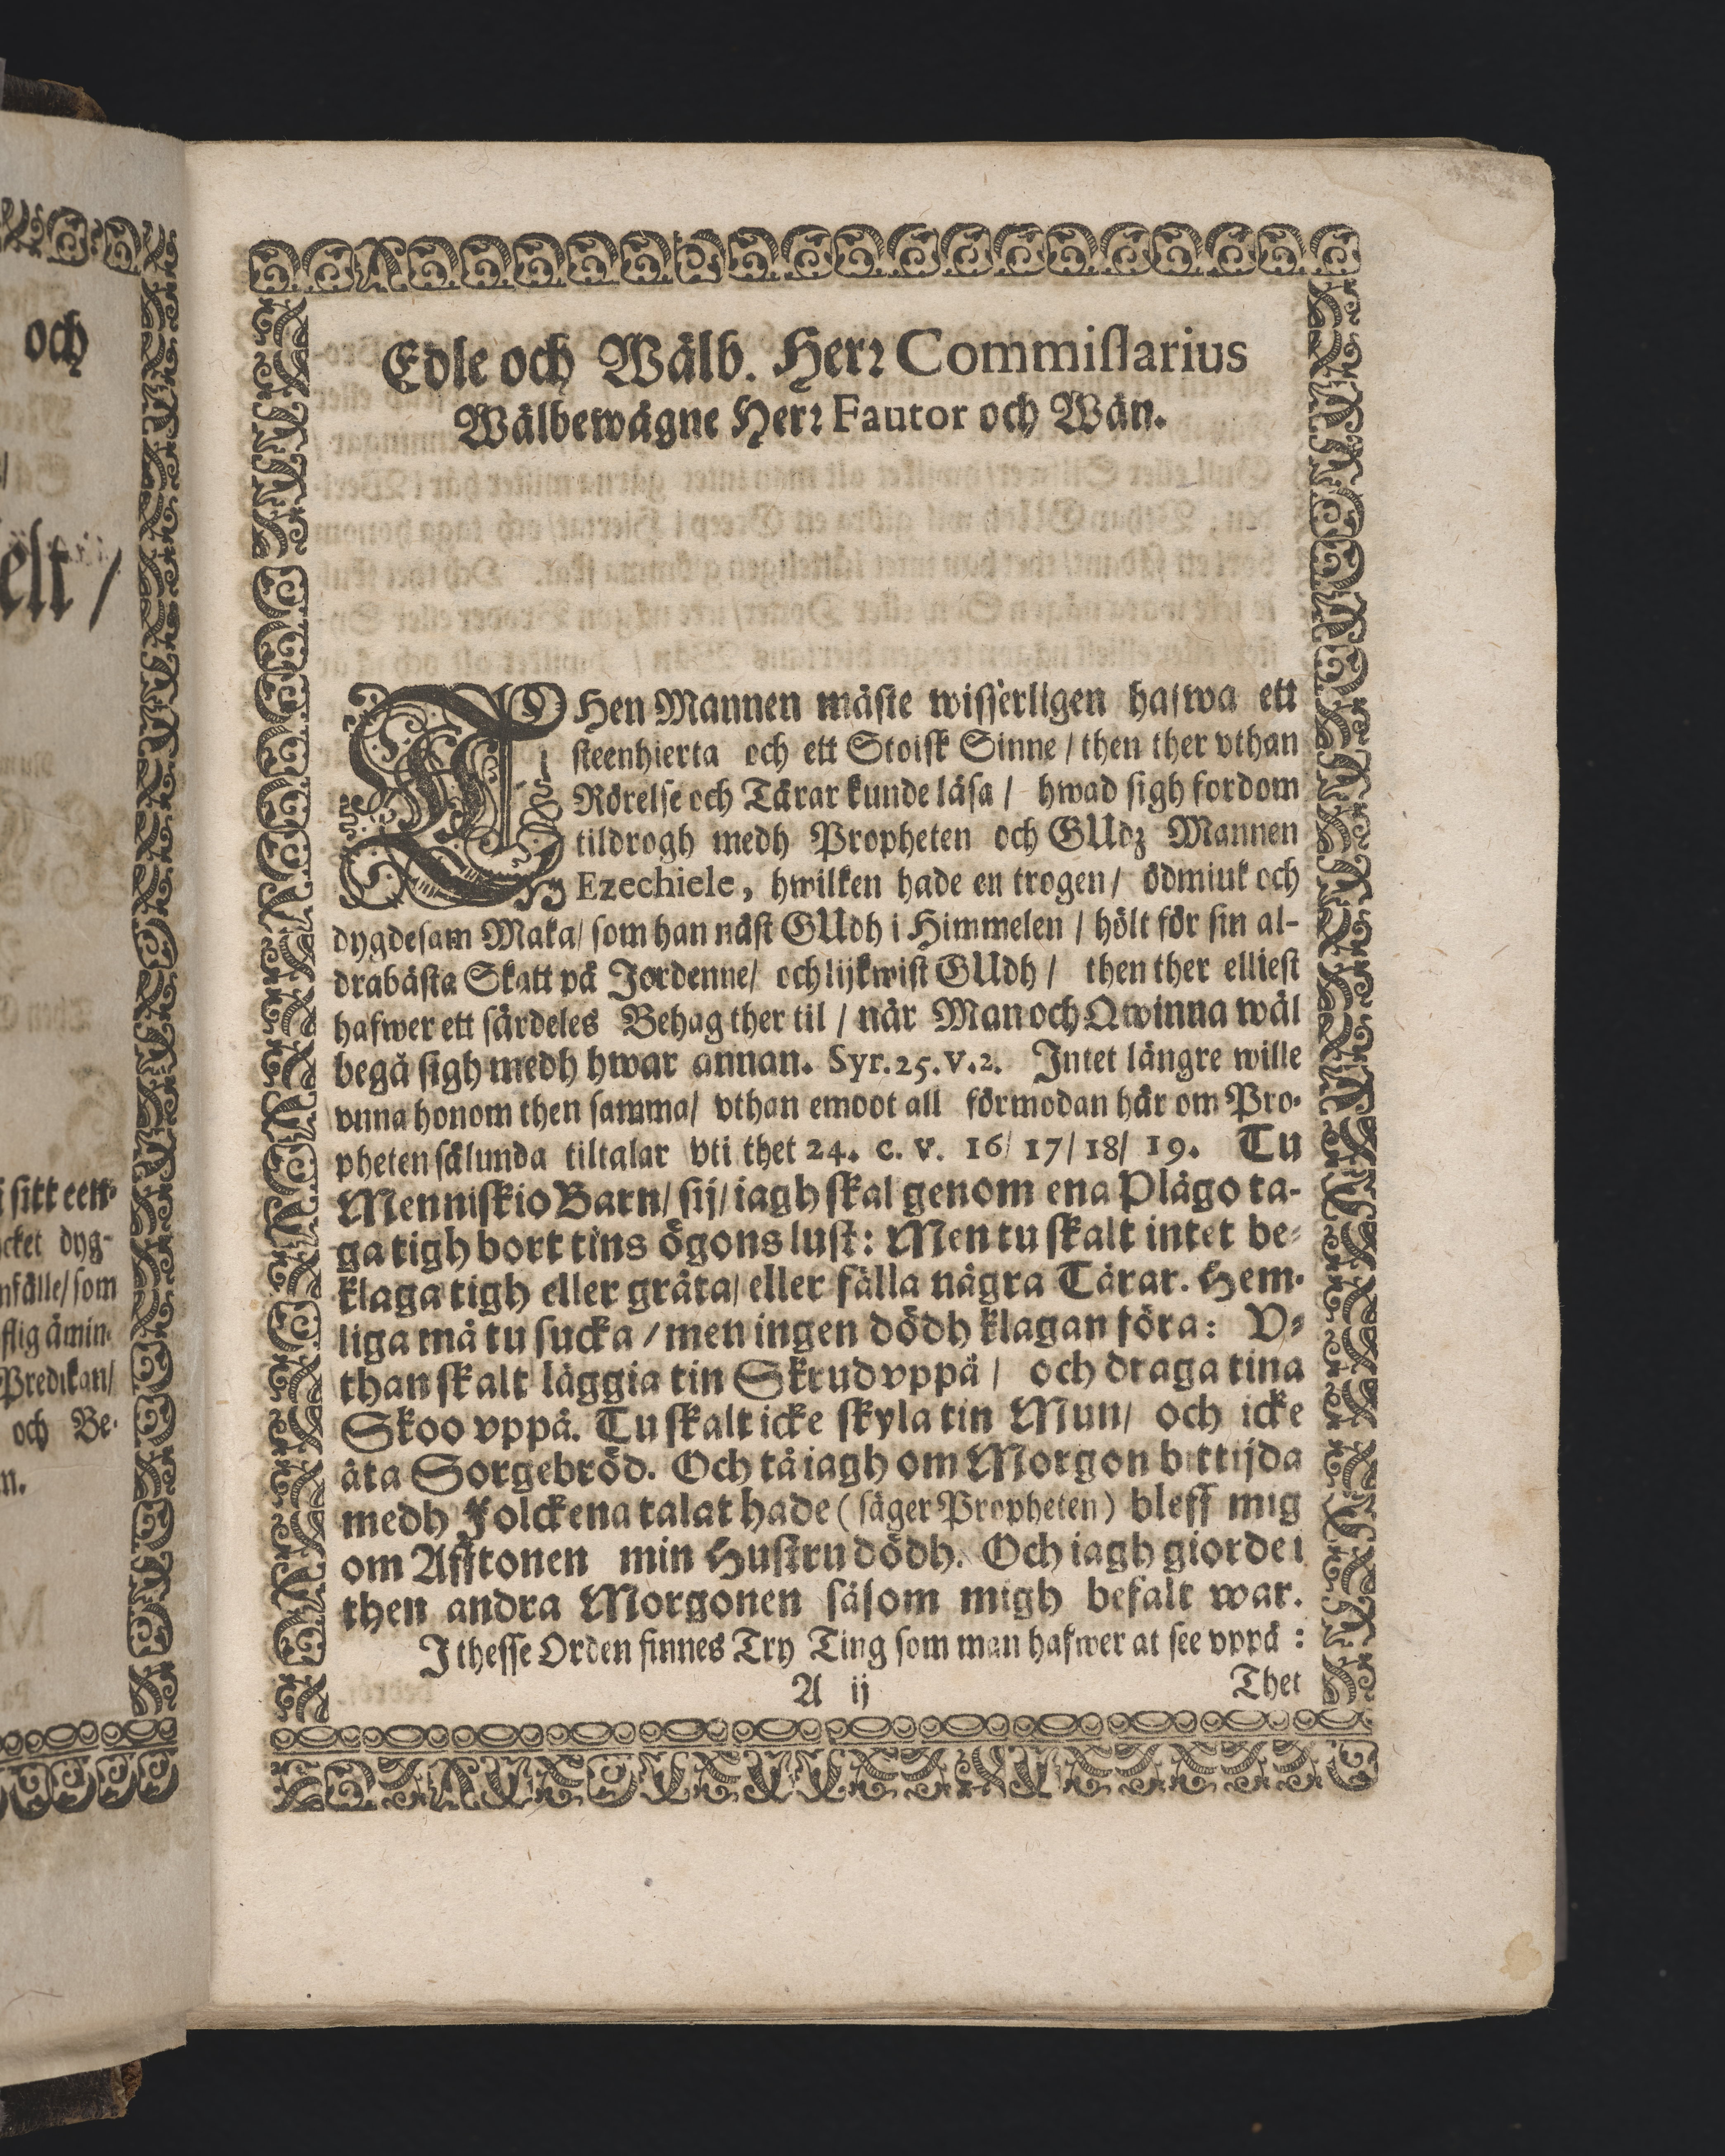 och
elt /
i sitt een-
cket dyg-
nfälle/ som
flig åmin-
Predikan/
och Be-
n.
Edle och Wälb. Herr Commissarius
Wälbewägne Herr Fautor och Wän.
THen Mannen måste wisserligen hafwa ett
steenhierta och ett Stoisk Sinne / then ther vthan
Rörelse och Tårar kunde läsa / hwad sigh fordom
tildrogh medh Propheten och GUdz Mannen
Ezechiele, hwilken hade en trogen / ödmiuk och
dygdesam Maka / som han näst GUdh i Himmelen / hölt för sin al-
drabästa Skatt på Jordenne / och lijkwist GUdh / then ther elliest
hafwer ett särdeles Behag ther til / när Man och Qwinna wäl
begå sigh medh hwar annan. Syr. 25. v. 2. Intet längre wille
vnna honom then samma / vthan emoot all förmodan här om Pro-
pheten sålunda tiltalar vti thet 24. c. v. 16 / 17 / 18 / 19. Tu
Menniskio Barn / sij / iagh skal genom ena Plågo ta-
ga tigh bort tins ögons lust: Men tu skalt intet be-
klaga tigh eller gråta / eller fälla några Tårar. Hem-
liga må tu sucka / men ingen dödh klagan föra: V-
than skalt läggia tin Skrud vppå / och draga tina
Skoo vppå. Tu skalt icke skyla tin Mun / och icke
äta Sorgebröd. Och tå iagh om Morgon bittijda
medh Folckena talat hade ( säger Propheten ) bleff mig
om Afftonen min Hustru dödh. Och iagh giorde i
then andra Morgonen såsom migh befalt war.
I thesse Orden finnes Try Ting som man hafwer at see vppå :
A ij Thet